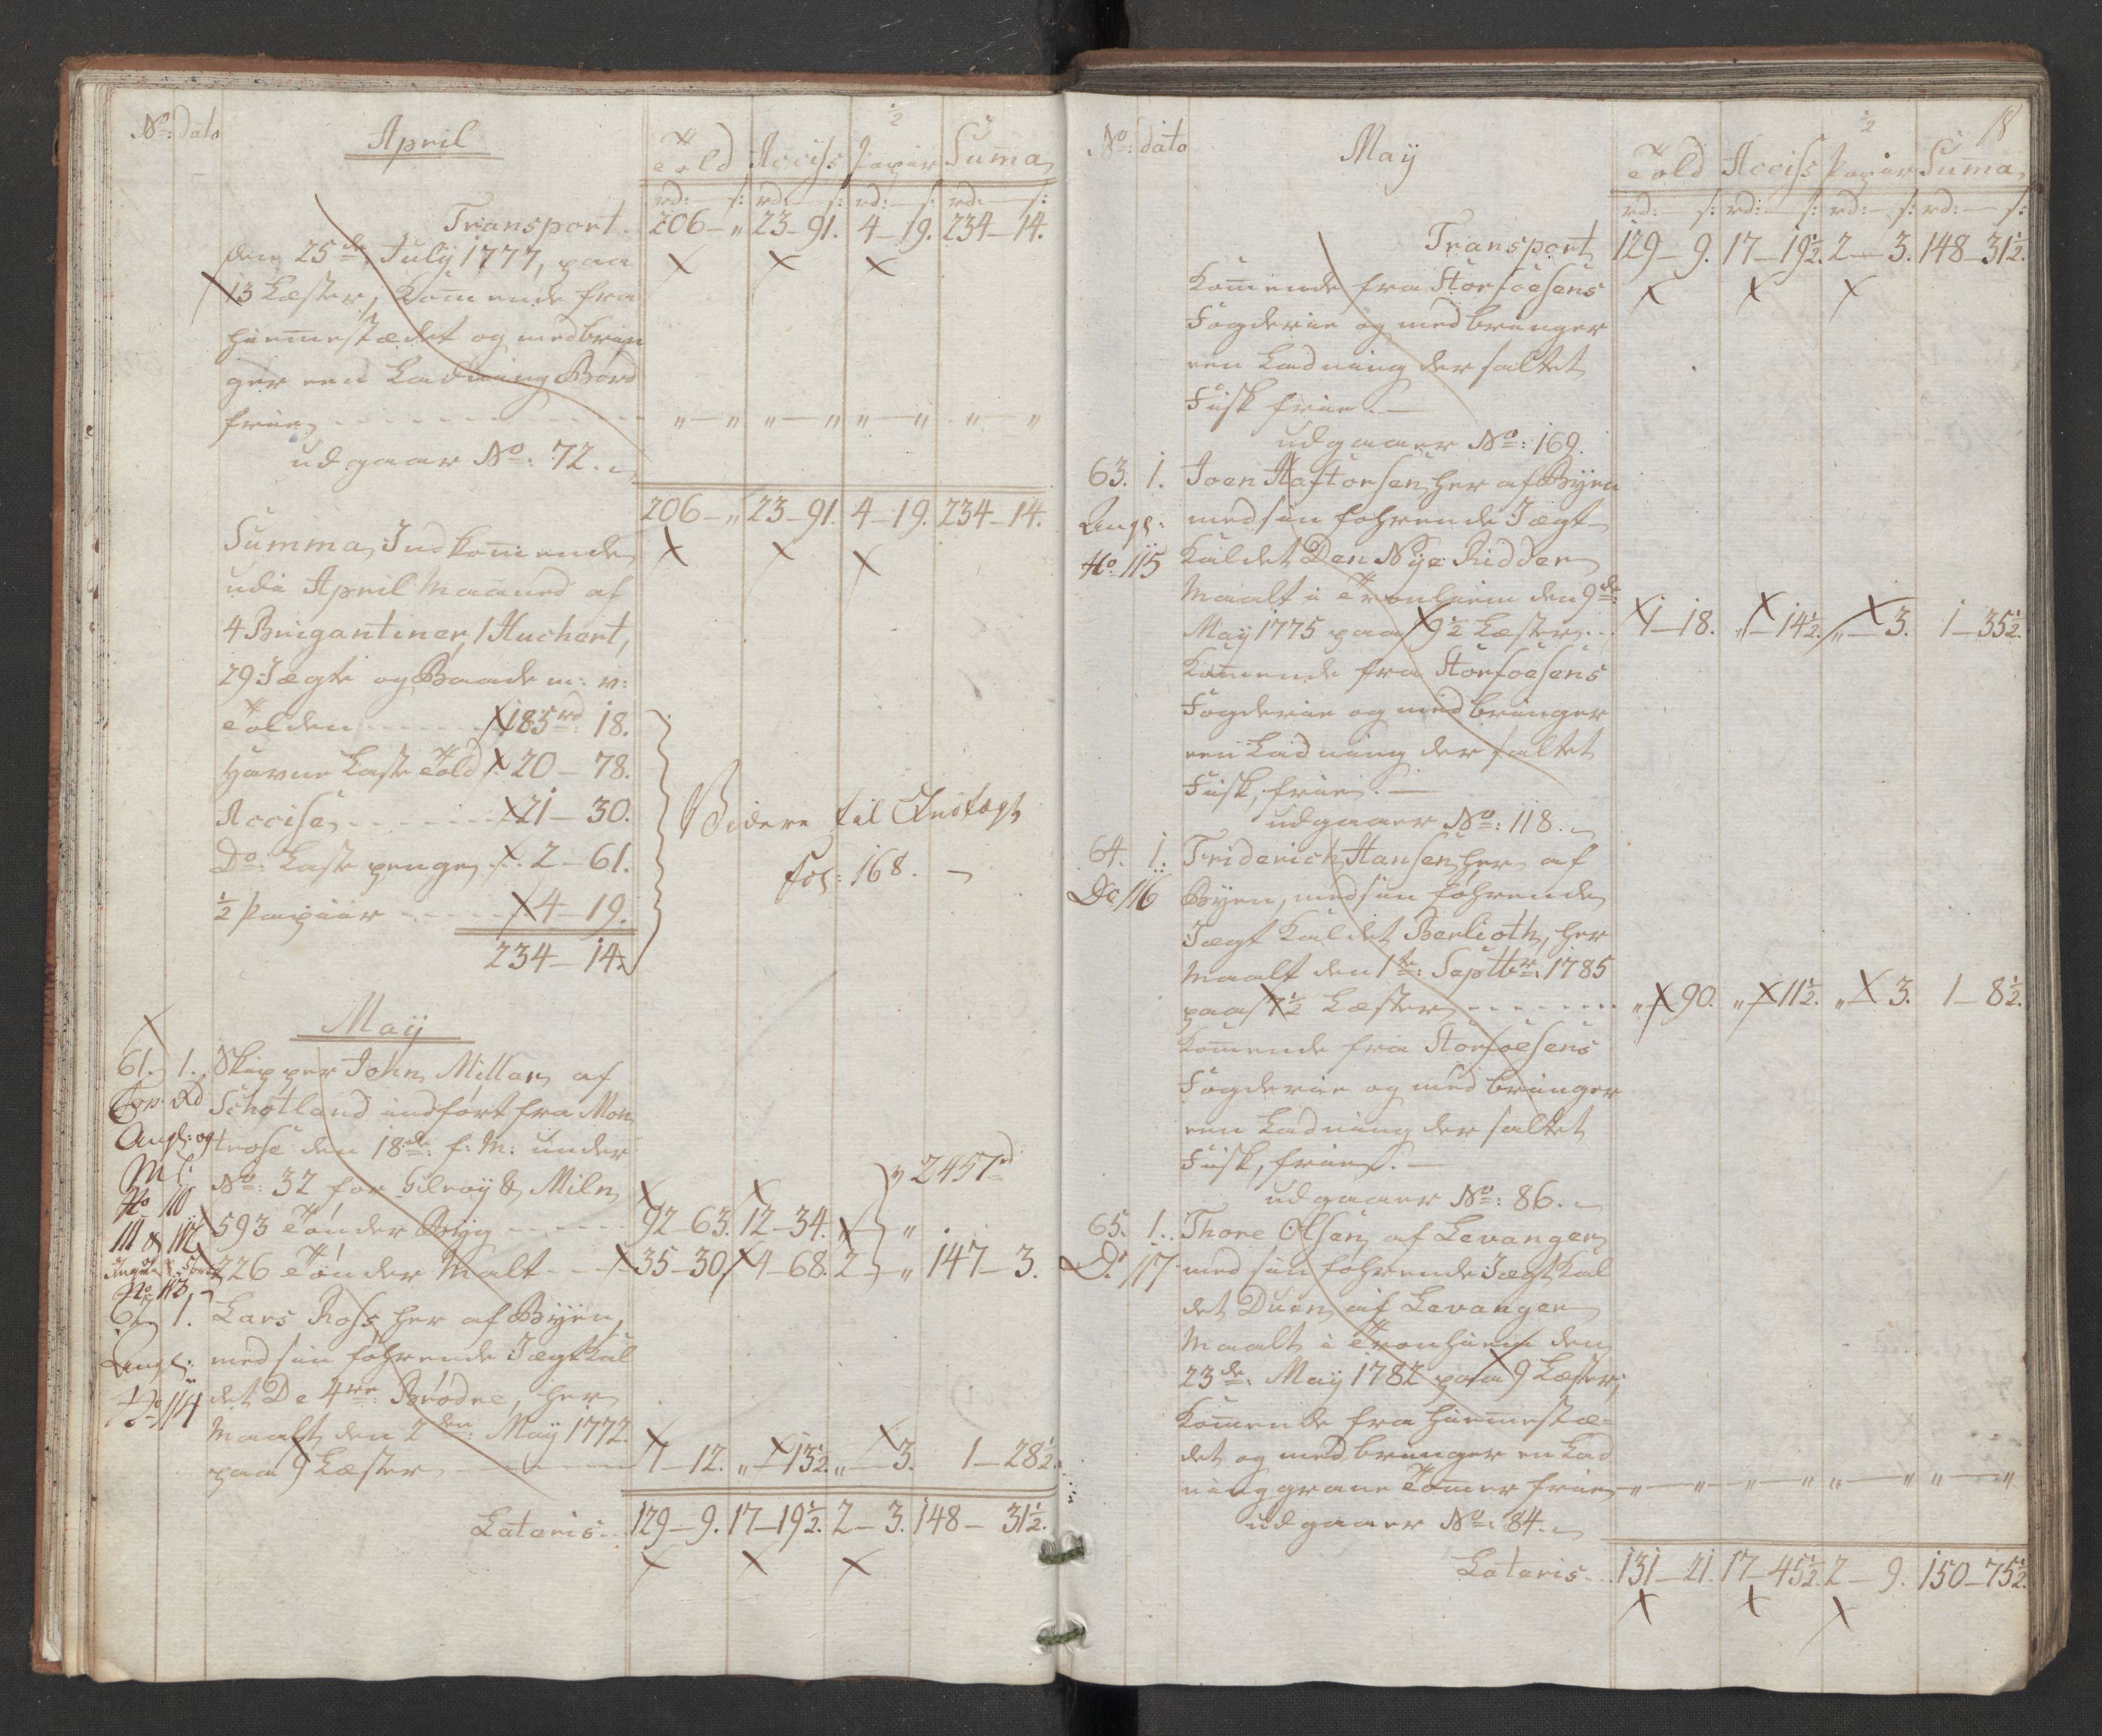 No: dato
April
1/2
Told Acciss Papiir Suma
rd: s: rd: s: rd: s: rd: s:
Transport 206 - " 23 - 91. 4 - 19. 234 - 14.
den 25de July 1777, paa
13 Læster, Kom̄ende fra
hiemmestædet og medbrin
ger een Ladning Bord
frie " - " " - " " - " " - "
udgaar No: 72.
206 - " 23 - 91. 4 - 19. 234 - 14.
Summa Indkom̄ende
udi April Maaned af
4 Brigantiner, 1 Huchert,
29 Jægte og Baade m: v:
Tolden 185rd 18.
Havne Laste Told 20 - 78.
Accise 21 - 30.
Do: Laste penge 2 - 61.
1/2 Papiir 4 - 19.
234 - 14.
Videre til Indtægt
Fol: 168.
May
61. 1. Skipper John Millar af
Schotland indført fra Mon
Angl: og trose den 18de: f: M: under
No: 32 for Gilroy & Miln 2457rd
No 110
593 Tønder Byg 92 - 63. 12 - 34.
111 & 112
226 Tønder Malt 35 - 30. 4 - 68. 2 - " 147 - 3.
No 113
62 1. Lars Ross, her af Byen,
Angl: med sin førende Jægt Kal
No 114 det De 4re Brødre, her
Maalt den 2den: May 1772.
paa 9 Læster 1 - 12. " - 13 1/2. " - 3. 1 - 28 1/2.
Lateris 129 - 9. 17 - 19 1/2. 2 - 3. 148 - 31 1/2.
18
No: dato
May
1/2
Told Acciss Papiir Suma
rd: s: rd: s: rd: s: rd: s:
Transport 129 - 9. 17 - 19 1/2. 2 - 3. 148 - 31 1/2.
Kom̄ende fra Storfosens
Fogderie og medbringer
een Ladning der saltet
Fiisk frie.
udgaaer No: 169.
63. 1. Joen Haftorsen, her af Byen
Angl: med sin førende Jægt
No 115 Kaldet Den Nye Ridder
Maalt i Tronhiem den 9de:
May 1775 paa 9 1/2 Læster 1 - 18. " - 14 1/2. " - 3. 1 - 35 1/2.
Kom̄ende fra Storfosens
Fogderie og medbringer
een Ladning der saltet
Fiisk, frie.
udgaaer No: 118.
64. 1. Friderich Hansen, her af
Do 116 Byen, med sin førende
Jægt Kaldet Berlioth, her
Maalt den 1te: Septbr: 1785
paa 7 1/2 Læster " - 90. " - 11 1/2. " - 3. 1 - 8 1/2.
Kom̄ende fra Storfosens
Fogderie og medbringer
een Ladning der saltet
Fiisk, frie.
udgaaer No: 86.
65. 1. Thore Olsen af Levanger
Do 117 med sin førende Jægt Kal
det Duen af Levanger
Maalt i Tronhiem den
23de: May 1782 paa 9 Læster,
Kom̄ende fra hiemmestæ-
det og medbringer en Lad
ning grane Tømer frie " - " " - " " - " " - "
udgaaer No: 84.
Lateris 131 - 21. 17 - 45 1/2. 2 - 9. 150 - 75 1/2.